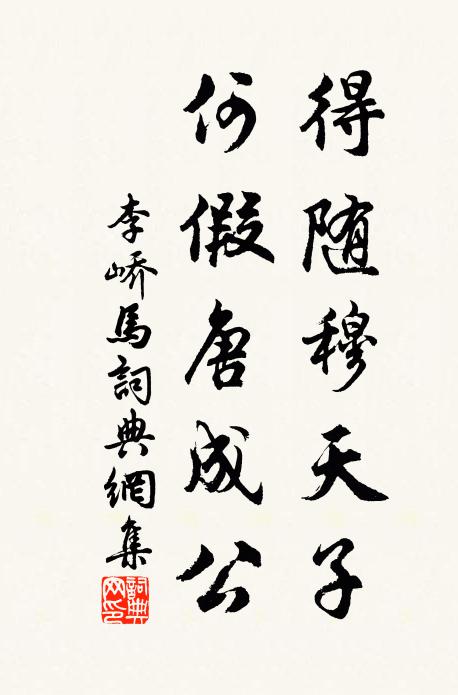 得随穆天子
何假唐成公
李峤馬詞典網集
詞典网印